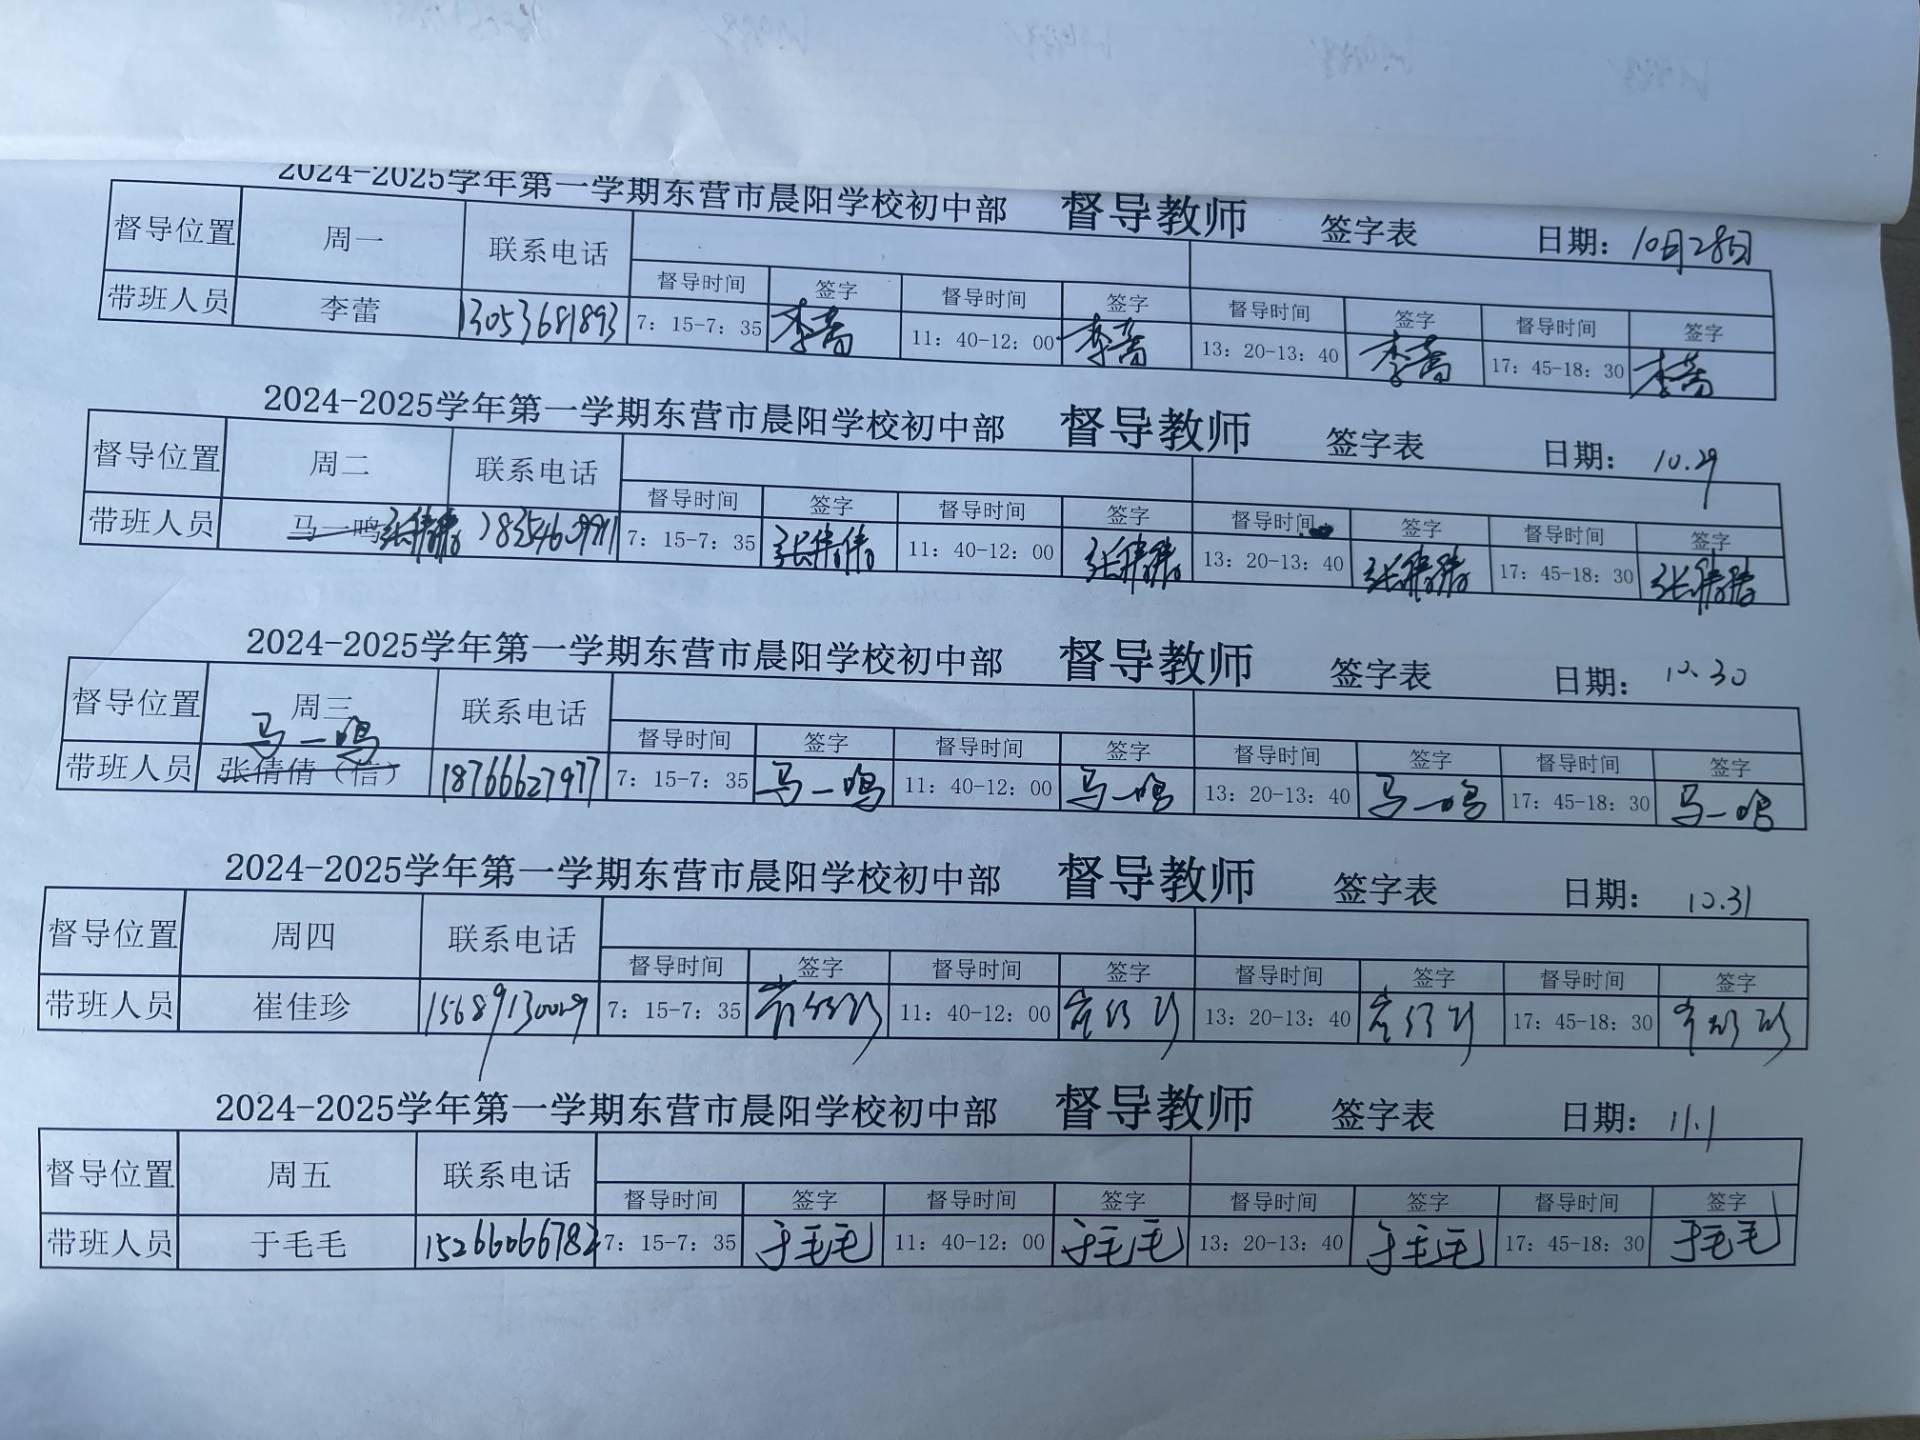 2024-2025学年第一学期东营市晨阳学校初中部 督导教师 签字表 日期：10月28日
督导位置 周一 联系电话
督导时间 签字 督导时间 签字 督导时间 签字 督导时间 签字
带班人员 李蕾 13053681893 7：15-7：35 李蕾 11：40-12：00 李蕾 13：20-13：40 李蕾 17：45-18：30 李蕾
2024-2025学年第一学期东营市晨阳学校初中部 督导教师 签字表 日期：10.29
督导位置 周二 联系电话
督导时间 签字 督导时间 签字 督导时间 签字 督导时间 签字
带班人员 马一鸣 张倩倩 7：15-7：35 张倩倩 11：40-12：00 张倩倩 13：20-13：40 张倩倩 17：45-18：30 张倩倩
2024-2025学年第一学期东营市晨阳学校初中部 督导教师 签字表 日期：10.30
督导位置 周三 联系电话
马一鸣
督导时间 签字 督导时间 签字 督导时间 签字 督导时间 签字
带班人员 张倩倩（信） 18766627977 7：15-7：35 马一鸣 11：40-12：00 马一鸣 13：20-13：40 马一鸣 17：45-18：30 马一鸣
2024-2025学年第一学期东营市晨阳学校初中部 督导教师 签字表 日期：10.31
督导位置 周四 联系电话
督导时间 签字 督导时间 签字 督导时间 签字 督导时间 签字
带班人员 崔佳珍 15689130029 7：15-7：35 崔佳珍 11：40-12：00 崔佳珍 13：20-13：40 崔佳珍 17：45-18：30 崔佳珍
2024-2025学年第一学期东营市晨阳学校初中部 督导教师 签字表 日期：11.1
督导位置 周五 联系电话
督导时间 签字 督导时间 签字 督导时间 签字 督导时间 签字
带班人员 于毛毛 15266066782 7：15-7：35 于毛毛 11：40-12：00 于毛毛 13：20-13：40 于毛毛 17：45-18：30 于毛毛